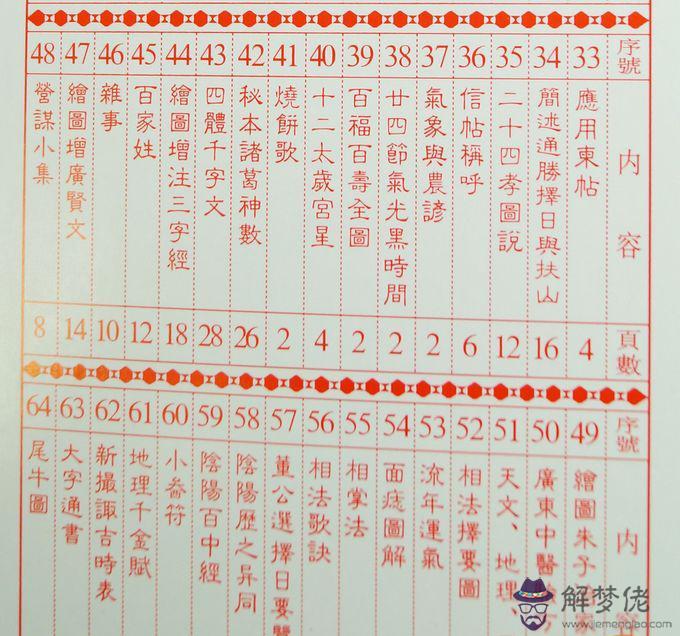 序號 內容 頁數
33 應用柬帖 4
34 簡述通勝擇日與扶山 16
35 二十四孝圖說 12
36 信帖稱呼 6
37 氣象與農諺 2
38 廿四節氣光黑時間 2
39 百福百壽全圖 2
40 十二太歲宮星 4
41 燒餅歌 2
42 秘本諸葛神數 26
43 四體千字文 28
44 繪圖增注三字經 18
45 百家姓 12
46 雜事 10
47 繪圖增廣賢文 14
48 營謀小集 8
序號 內容
49 繪圖朱子
50 廣東中醫
51 天文、地理、
52 相法擇要圖
53 流年運氣
54 面痣圖解
55 相掌法
56 相法歌訣
57 董公選擇日要覽
58 陰陽歷之异同
59 陰陽百中經
60 小畚符
61 地理千金賦
62 新撮諏吉時表
63 大字通書
64 尾牛圖
解梦佬
www.jiemenglao.com